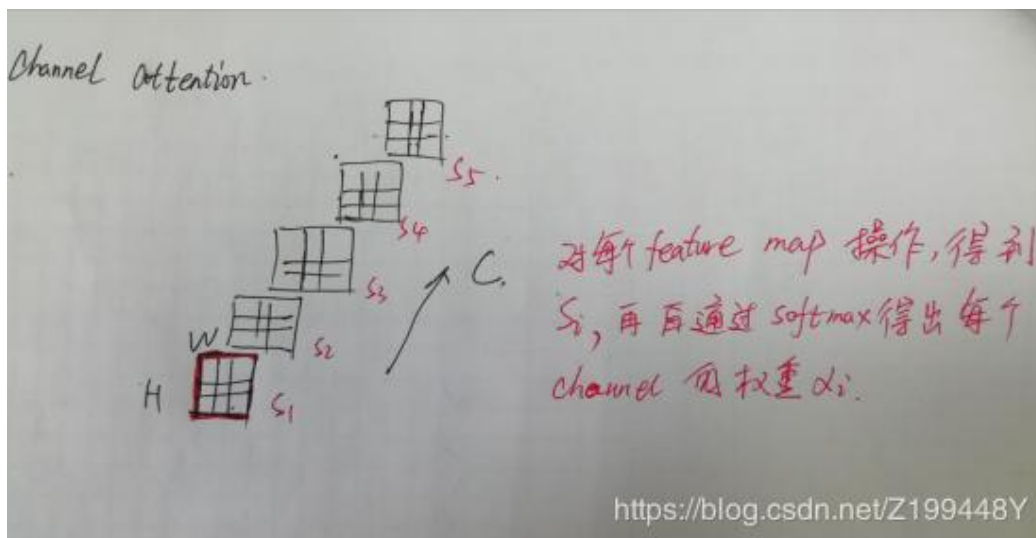 Channel attention.
S5.
S4
C.
S3
W
S2
H
S1
对每个 feature map 操作,得到
Si,再后通过 softmax 得出每个
channel 的权重 αi.
https://blog.csdn.net/Z199448Y